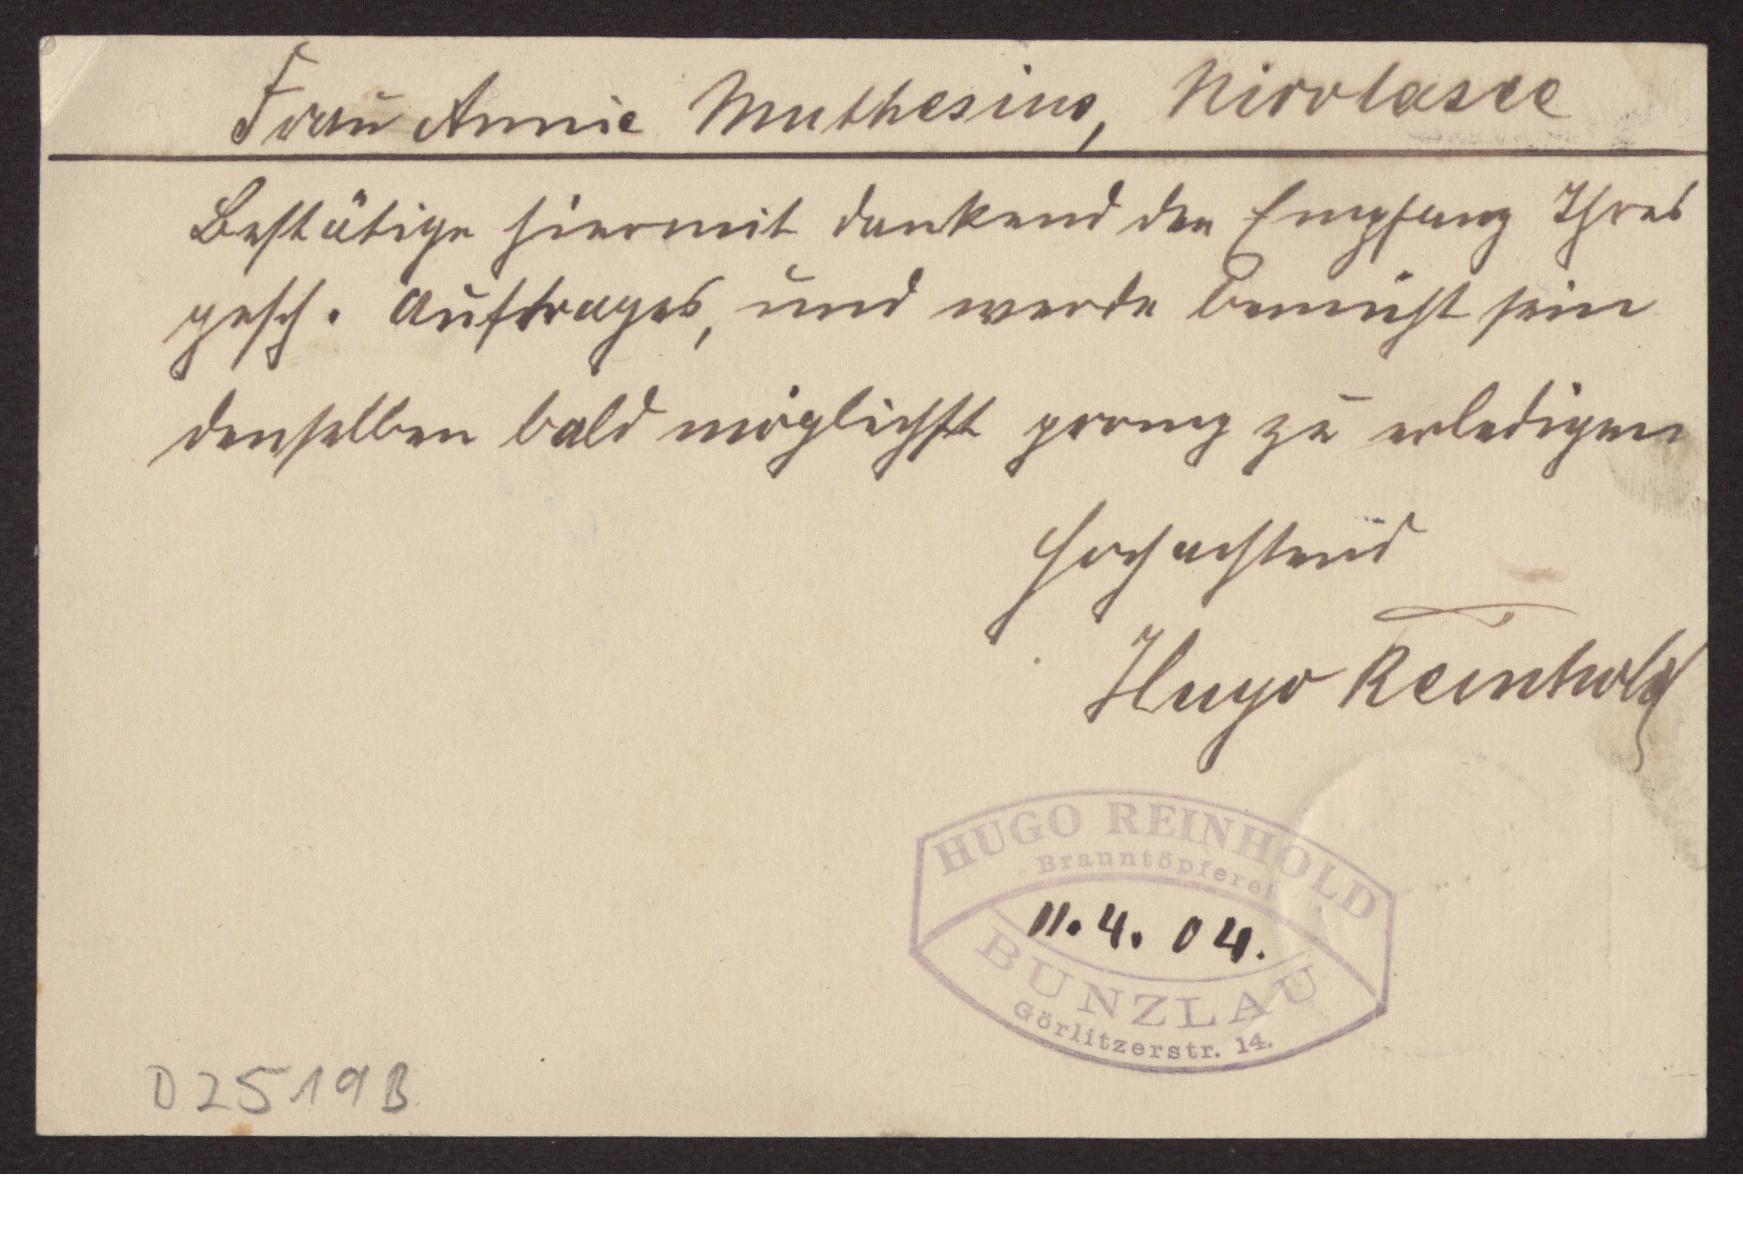 Frau Annie Muthesius, Nicolasee
Bestätige hiermit dankend den Empfang Ihres
gesch. Auftrages, und werde bemüht sein
denselben bald möglichst promp zu erledigen
Hochachtend
Hugo Reinhold
HUGO REINHOLD
Brauntöpferei
11.4.04.
BUNZLAU
Görlitzerstr. 14.
D2519B